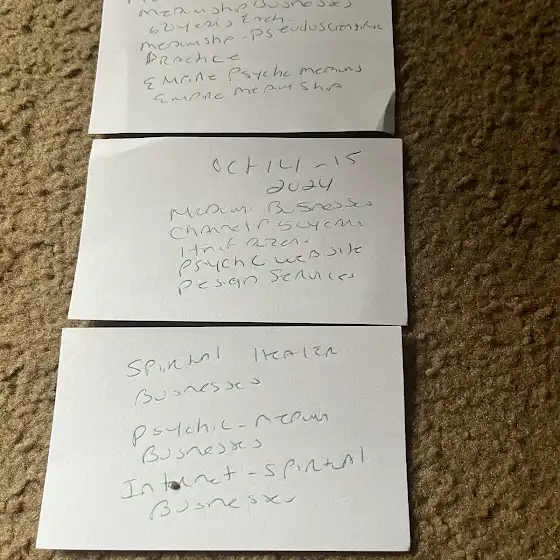 Mediumship Businesses
60 years Each.
Mediumship - Pseudoscientific
Practice
Empire Psychic Mediums
Empire Mediumship
Oct 14 - 15
2024
Medium Businesses
Channel 50 years
Psychic web site
Design Services
Spiritual Healer
Businesses
Psychic - Medium
Businesses
Internet - Spiritual
Businesses